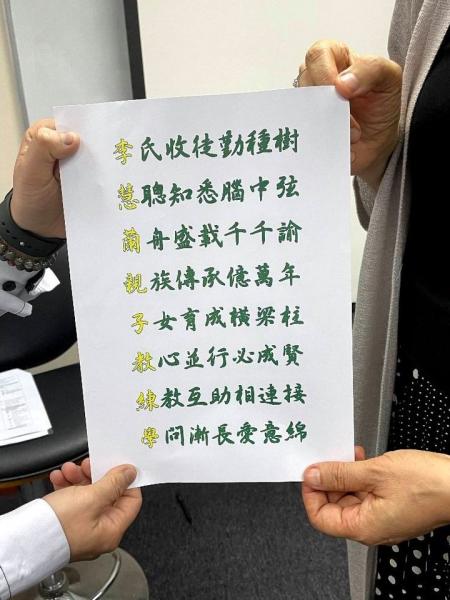 李氏收徒勤種樹
慧聰知悉腦中弦
蘭舟盛載千千諭
親族傳承億萬年
子女育成橫梁柱
教心並行必成賢
練教互助相連接
學問漸長愛意綿